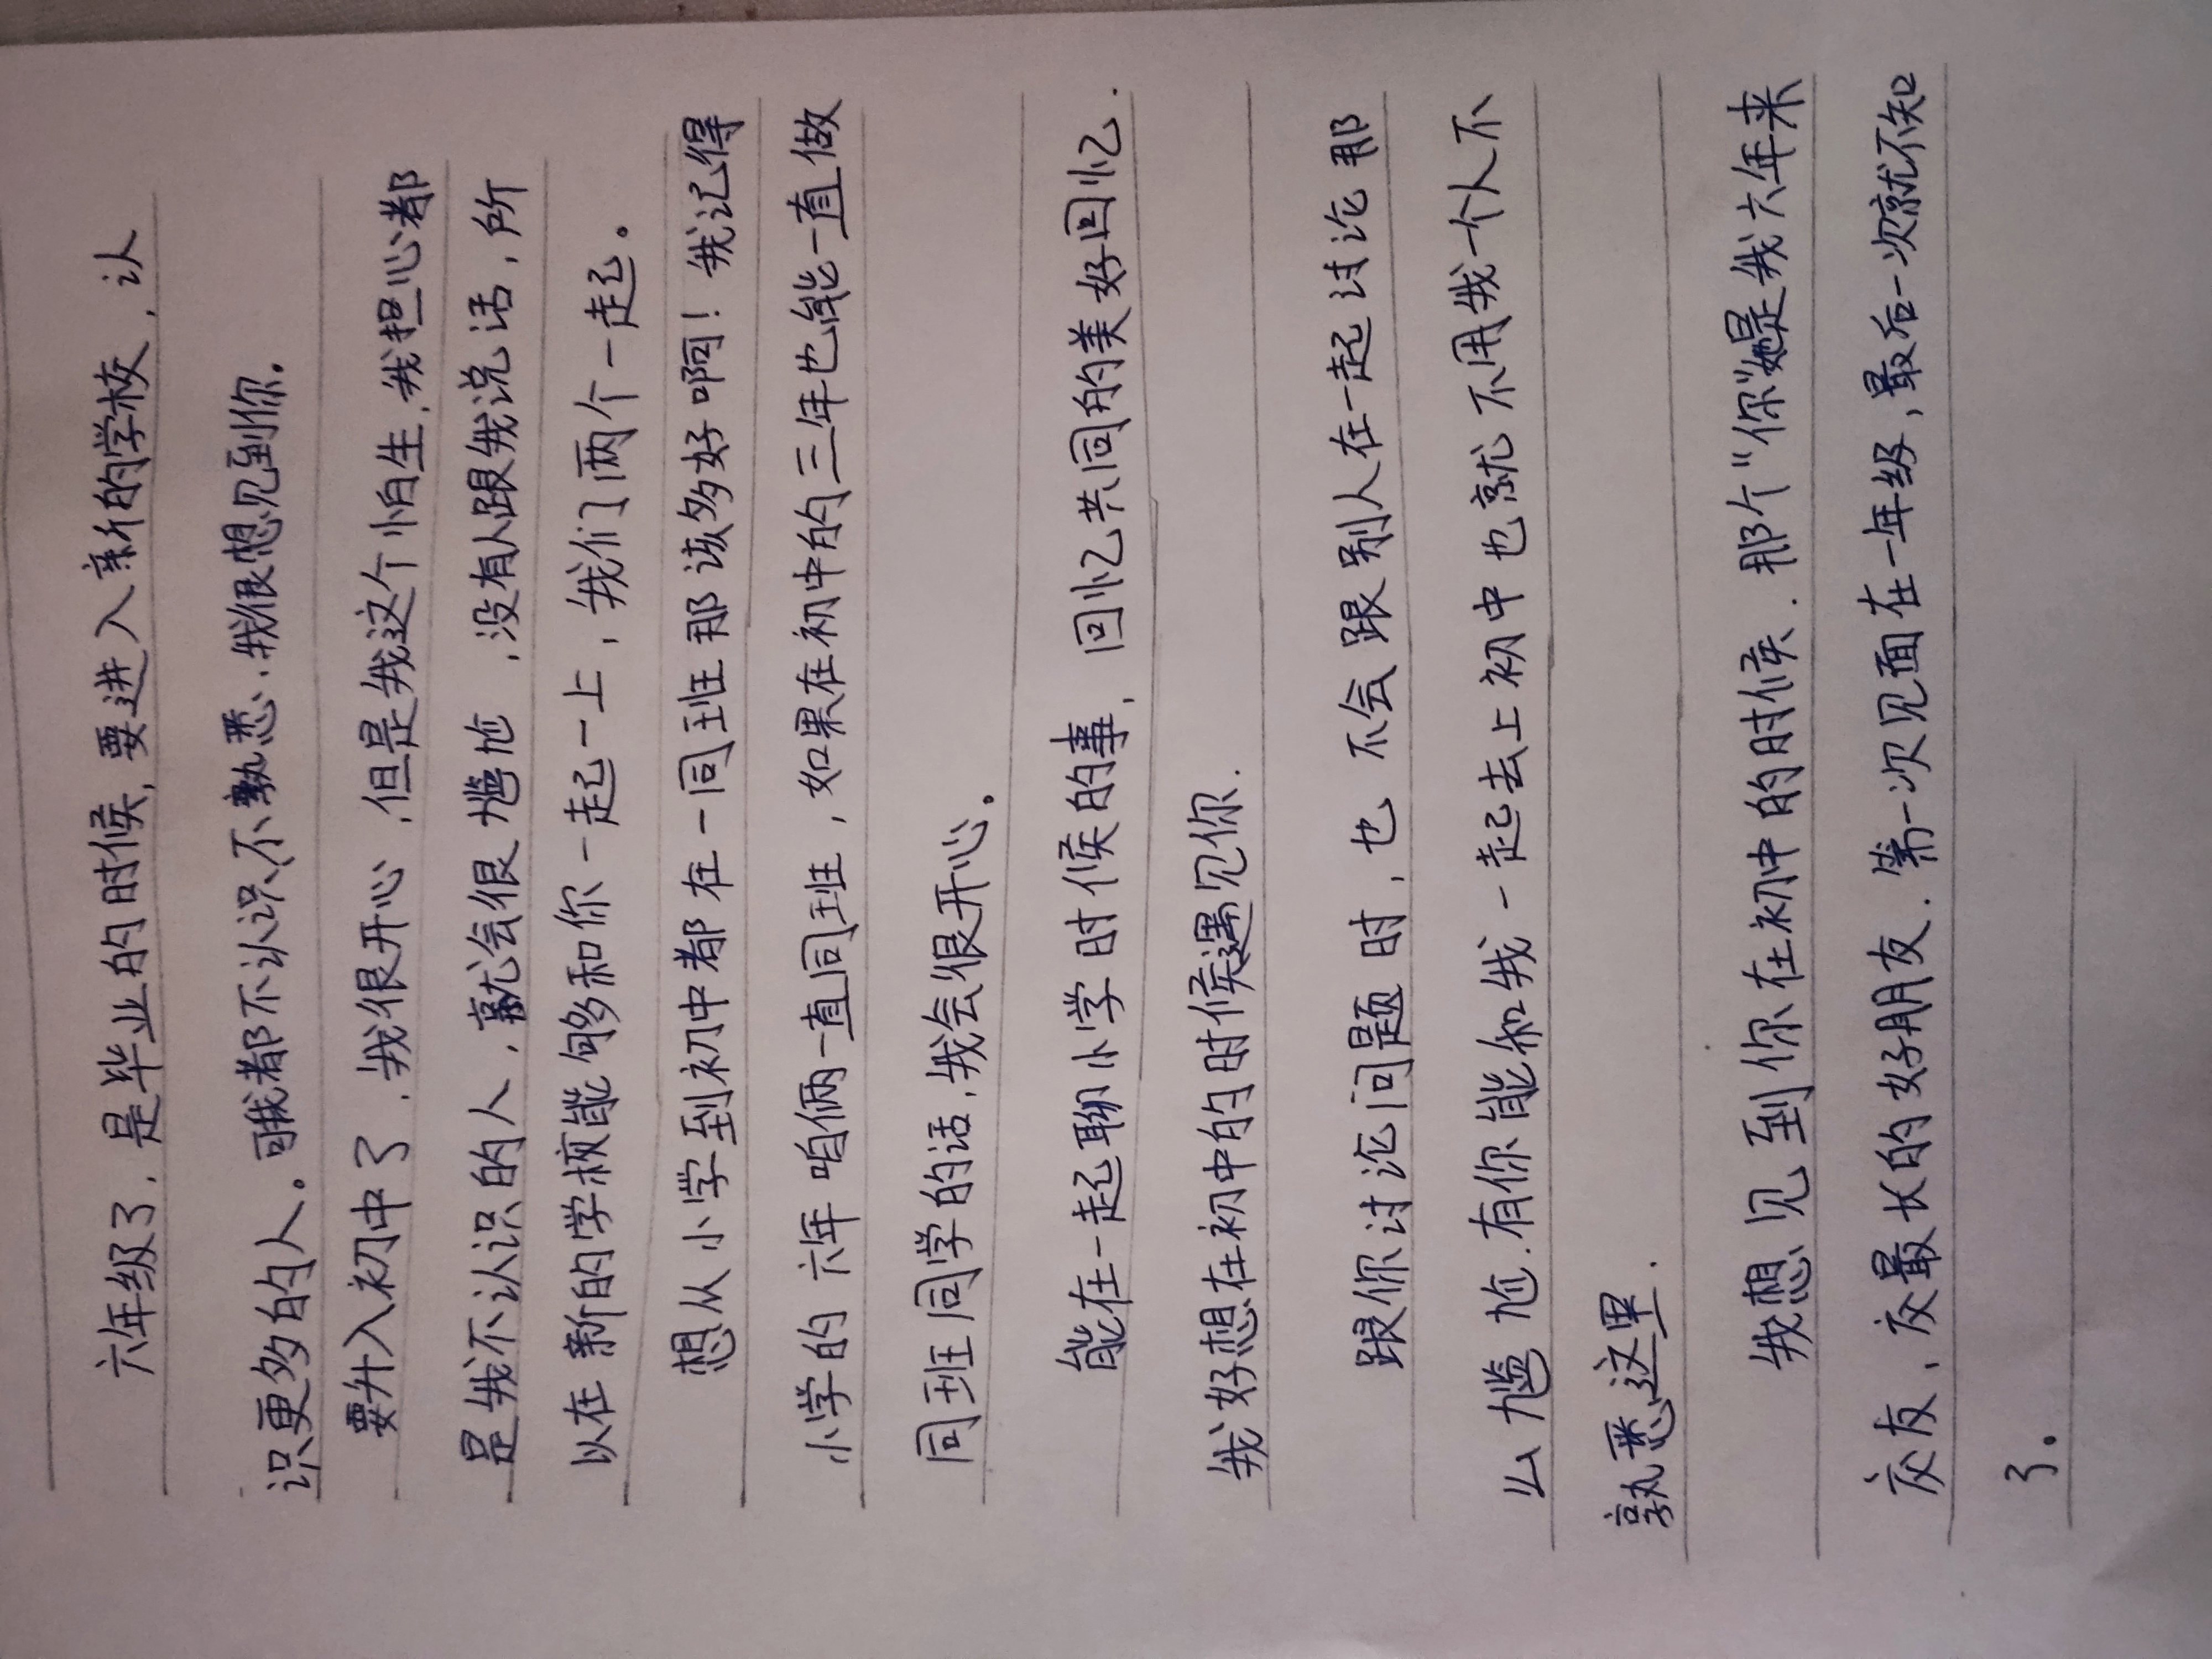 六年级了，是毕业的时候，要进入新的学校，认
识更多的人。可我都不认识、不熟悉，我很想见到你。
要升入初中了，我很开心，但是我这个怕生，我担心都
是我不认识的人，就会很尴尬，没有人跟我说话，所
以在新的学校能够和你一起一上，我们两个一起。
想从小学到初中都在一同班那该多好啊！我记得
小学的六年咱俩一直同班，如果在初中的三年也能一直做
同班同学的话，我会很开心。
能在一起聊小学时候的事，回忆共同的美好回忆.
我好想在初中的时候遇见你.
跟你讨论问题时，也不会跟别人在一起讨论那
么尴尬.有你能和我一起去上初中也就不用我一个人不
熟悉这里.
我想见到你在初中的时候.那个“你”她是我六年来
交友、交最长的好朋友.第一次见面在一年级，最后一次就不知
了。